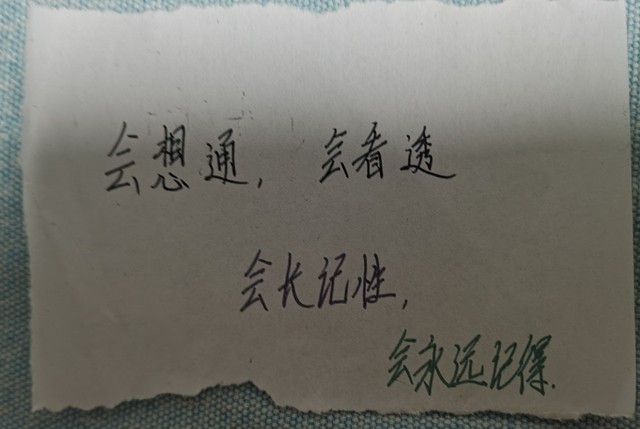 会想通，会看透
会长记性，
会永远记得.